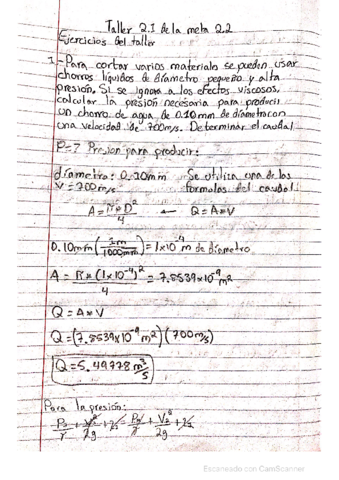 Taller 2.1 de la meta 2.2
Ejercicios del taller
1-Para cortar varios materiales se pueden usar
chorros líquidos de diametro pequeño y alta
presión. Si se ignora a los efectos viscosos,
calcular la presión necesaria para producir
un chorro de agua de 0.10mm de diametro con
una velocidad de 700m/s. Determinar el caudal
P=? Presion para producir:
diametro: 0.10mm Se utiliza una de las
V=700m/s formulas del caudal
A=π*D²/4 ← Q=A*V
0.10mm(1m/1000mm)=1x10⁻⁴m de diametro
A=π*(1x10⁻⁴)²/4=7.8539x10⁻⁹m²
Q=A*V
Q=(7.8539x10⁻⁹m²)(700m/s)
Q=5.49778 m³/s
Para la presión:
Escaneado con CamScanner